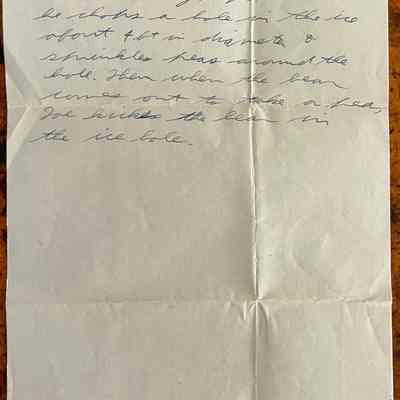 he chops a hole in the ice
about 4 ft in diameter &
sprinkles peas around the
hole. Then when the bear
comes out to take a pea,
Joe kickes the bear in
the ice hole.